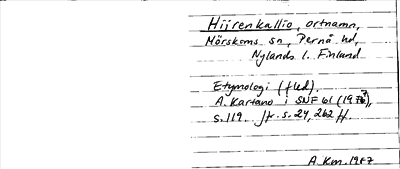 Hijrenkallio, ortnamn,
Mörskoms sn, Pernå hd,
Nylands l. Finland
Etymologi (fled).
A. Kartano i SNF 61 (1977),
s. 119. Jfr. s. 24, 262 ff.
A. Km. 1987